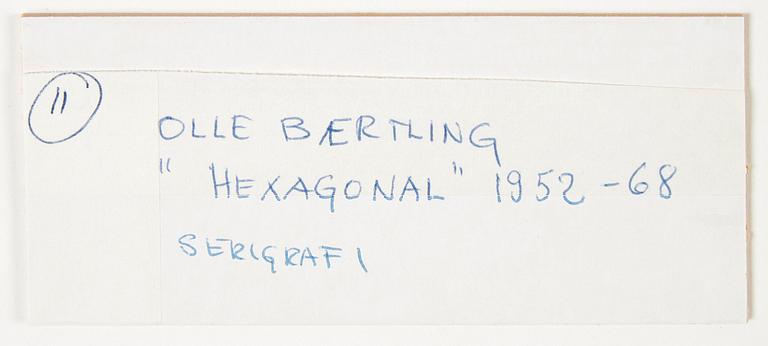 11
OLLE BÆRTLING
" HEXAGONAL" 1952-68
SERIGRAFI